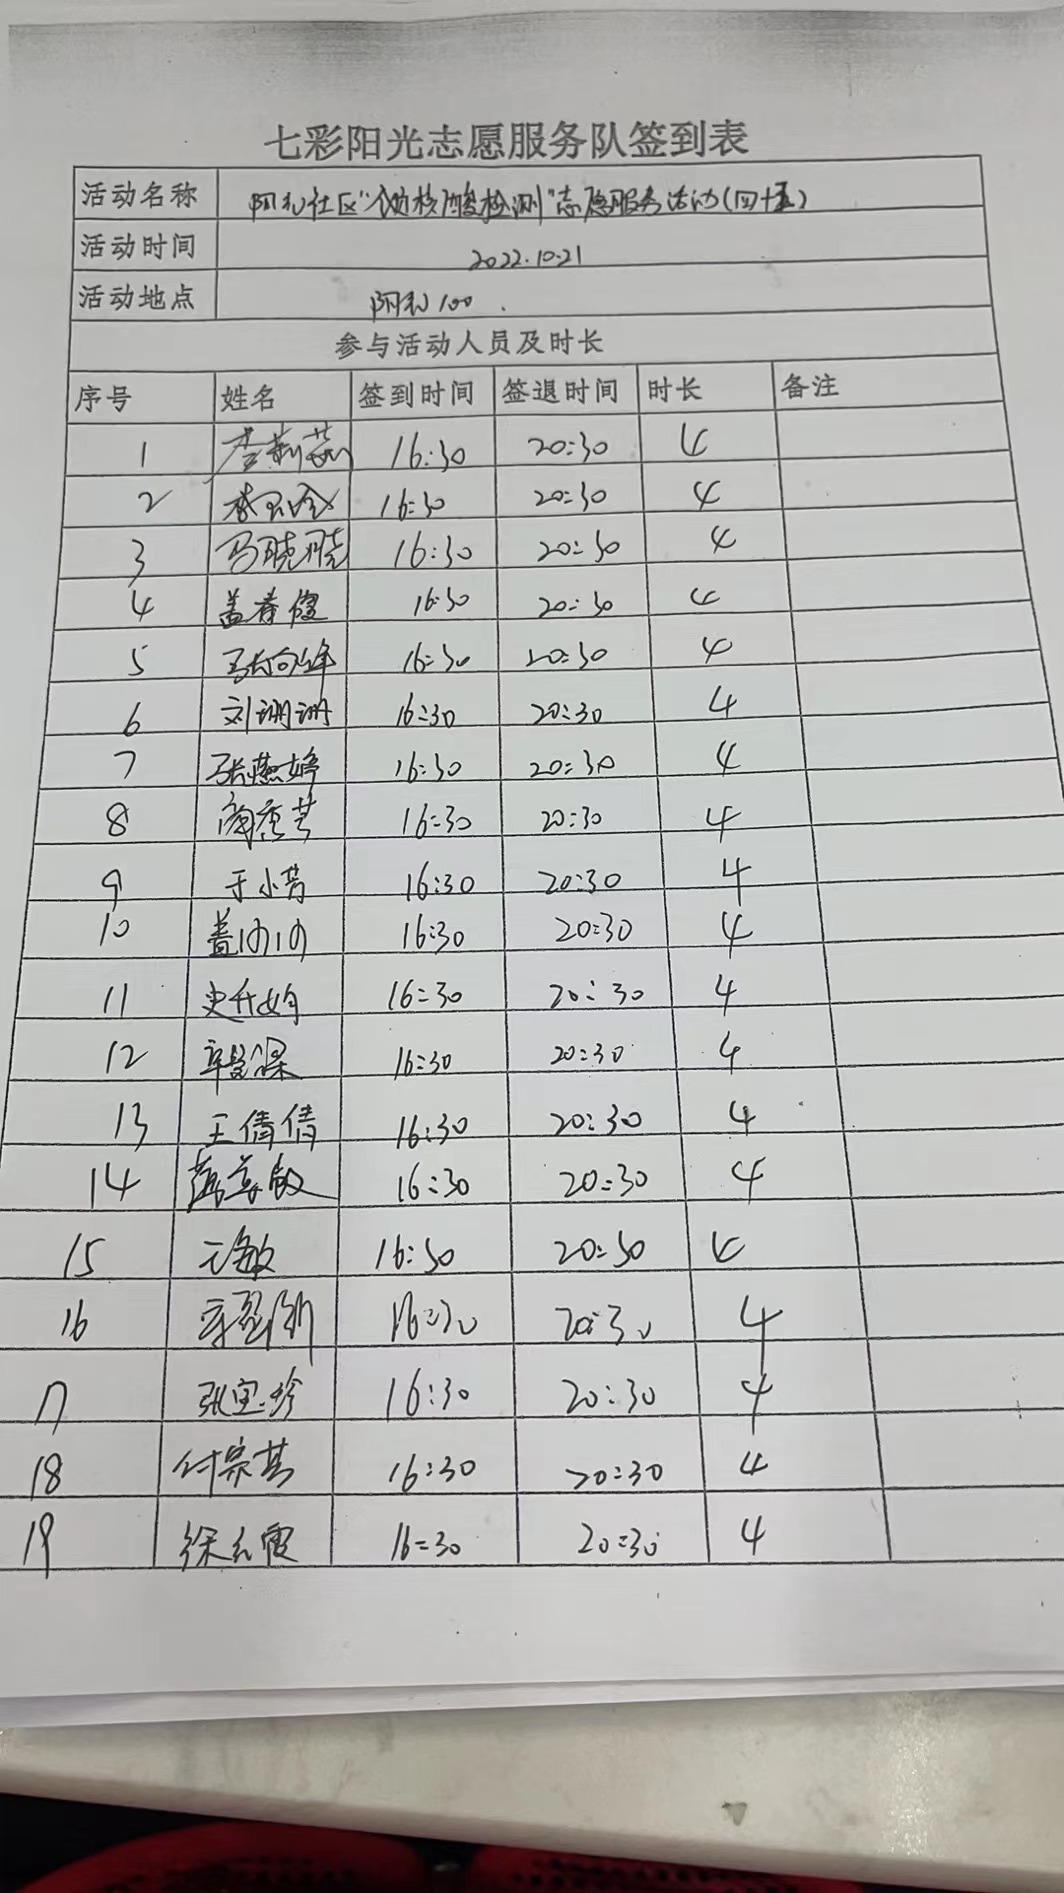 七彩阳光志愿服务队签到表
活动名称 社区"核酸检测"志愿服务活动(四十五)
活动时间 2022.10.21
活动地点 100
参与活动人员及时长
序号 姓名 签到时间 签退时间 时长 备注
1 16:30 20:30 4
2 16:30 20:30 4
3 马晓晓 16:30 20:30 4
4 盖春俊 16:30 20:30 4
5 16:30 20:30 4
6 刘珊珊 16:30 20:30 4
7 张燕婷 16:30 20:30 4
8 16:30 20:30 4
9 于小芳 16:30 20:30 4
10 盖 16:30 20:30 4
11 史 16:30 20:30 4
12 16:30 20:30 4
13 王倩倩 16:30 20:30 4
14 16:30 20:30 4
15 敏 16:30 20:30 4
16 16:30 20:30 4
17 张宝珍 16:30 20:30 4
18 付崇 16:30 20:30 4
19 徐 霞 16:30 20:30 4